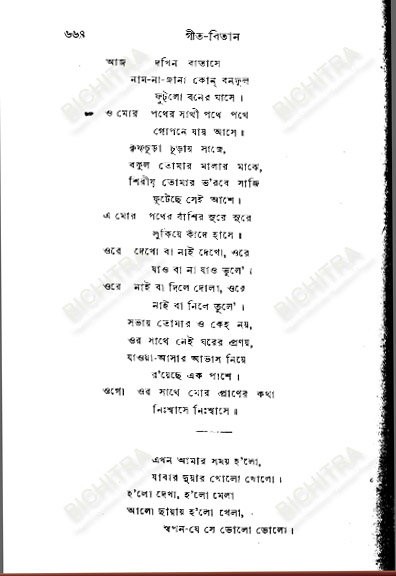 ৬৬৪ গীত-বিতান
আজ দখিন বাতাসে
নাম-না-জানা কোন্ বনফুল
ফুট্‌লো বনের ঘাসে।
ও মোর পথের সাথী পথে পথে
গোপনে যায় আসে॥
কৃষ্ণচূড়া চূড়ায় সাজে,
বকুল তোমার মালার মাঝে,
শিরীষ তোমার ভ'রবে সাজি
ফুটেছে সেই আশে।
এ মোর পথের বাঁশির সুরে সুরে
লুকিয়ে কাঁদে হাসে॥
ওরে দেখো বা নাই দেখো, ওরে
যাও বা না যাও ভুলে'।
ওরে নাই বা দিলে দোলা, ওরে
নাই বা নিলে তুলে'।
সভায় তোমার ও কেহ নয়,
ওর সাথে নেই ঘরের প্রণয়,
যাওয়া-আসার আভাস নিয়ে
র'য়েছে এক পাশে।
ওগো ওর সাথে মোর প্রাণের কথা
নিঃশ্বাসে নিঃশ্বাসে॥
এখন আমার সময় হ'লো,
যাবার দুয়ার খোলো খোলো।
হ'লো দেখা, হ'লো মেলা
আলো ছায়ায় হ'লো খেলা,
স্বপন-যে সে ভোলো ভোলো।
BICHITRA
BICHITRA
BICHITRA
BICHITRA
BICHITRA
BICHITRA
BICHITRA
BICHITRA